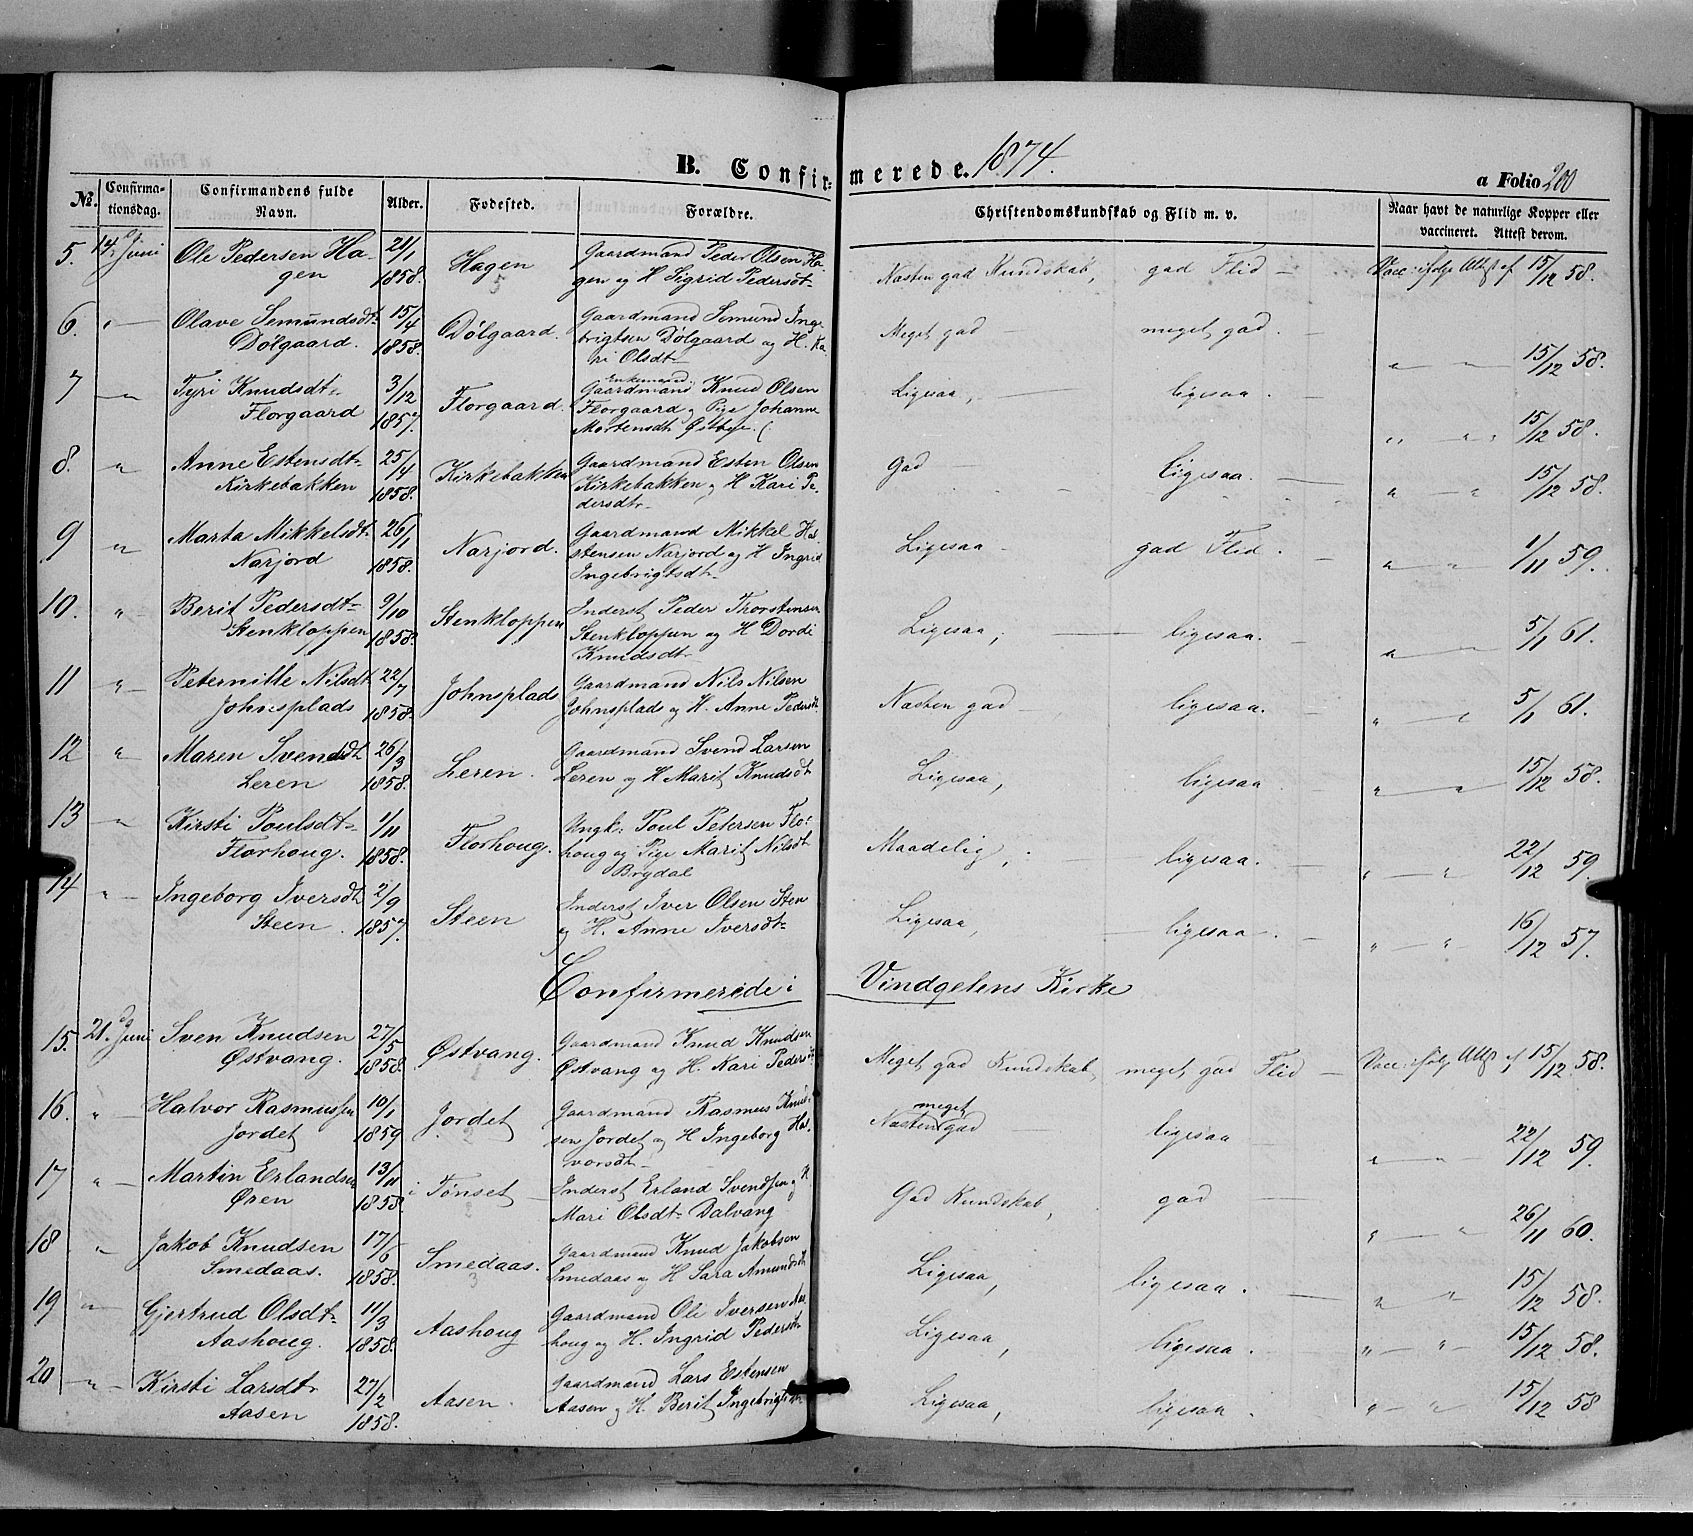 B. Confirmerede. 1874. a Folio 200
No. Confirmationsdag. Confirmandens fulde Navn. Alder. Fødested. Forældre. Christendomskundskab og Flid m. v. Naar havt de naturlige Kopper eller vaccineret. Attest derom.
5. 14d Juni Ole Pedersen Ha- 21/1 Hagen Gaardmand Peder Olsen Ha- Næsten god Kundskab, god Flid — Vacc. ifølge Attest af 15/12 58.
gen 1858. gen og H Sigrid Pedersdt
6. " — Olave Semundsdt 15/4 Dølgaard. Gaardmand Semund Inge- Meget god — meget god. — " " 15/12 58.
Dølgaard. 1858. brigtsen Dølgaard og H. Ka-
ri Olsdt
7 " — Tyri Knudsdt 3/12 Florgaard. Enkemand Gaardmand Knud Olsen Ligesaa, — ligesaa. — " " 15/12 58.
Florgaard 1857. Florgaard og Pige Johanne
Mortensdt Østbye.
8. " Anne Estensdt 25/4 Kirkebakken Gaardmand Esten Olsen God — ligesaa. — " " 15/12 58.
Kirkebakken 1858. Kirkebakken og H Kari Pe-
dersdtr
9 " Marta Mikkelsdt 26/1 Narjord. Gaardmand Mikkel Ha- Ligesaa — god Flid. — " " 1/11 59.
Narjord 1858. stensen Narjord og H Ingrid
Ingebrigtsdt
10. " Berit Pedersdt 9/10 Stenkloppen Inderst Peder Thorstensen Ligesaa, — ligesaa. — " " 5/1 61.
Stenkloppen 1858. Stenkloppen og H Dordi
Knudsdt
11 " Peternille Nilsdt 22/7 Johnsplads Gaardmand Nils Nilsen Næsten god ligesaa. — " " 5/1 61.
Johnsplads 1858. Johnsplads og H. Anne Pedersdt
12 " Maren Svendsdt 26/3 Leren. Gaardmand Svend Larsen Ligesaa, ligesaa " " 15/12 58.
Leren 1858. Leren og H Marit Knudsdt
13 " Kirsti Poulsdt 1/11 Florhoug. Ungk: Poul Petersen Flo- Maadelig, ligesaa. — " " 22/12 59.
Florhoug. 1858. houg og Pige Marit Nilsdt
Brydal
14 " — Ingeborg Iversdt 2/9 Steen Inderst Iver Olsen Sten Ligesaa, — ligesaa. — " " 16/12 57.
Steen. 1857. og H. Anne Iversdt
Confirmerede i Vindgelens Kirke
15. 21d Juni Sven Knudsen 27/5 Østvang. Gaardmand Knud Knudsen Meget god Kundskab, meget god Flid — Vacc. ifølge Attst af 15/12 58.
Østvang. 1858. Østvang og H. Kari Pedersdt
16. " Halvor Rasmussen 10/1 Jordet Gaardmand Rasmus Knud- Næsten meget god — ligesaa " " 22/12 59.
Jordet 1859 sen Jordet og H Ingeborg Hal-
vorsdt
17 " — Martin Erlandsen 13/11 i Tønset — Inderst Erland Svendsen og H God Kundskab, god — " " 26/11 60.
Øren 1858 Mari Olsdt Dalvang
18 " Jakob Knudsen 17/6 Smedaas. Gaardmand Knud Jakobsen Ligesaa, ligesaa. — " " 15/12 58.
Smedaas. 1858. Smedaas og H Sara Amundsdt
19 " — Gjertrud Olsdt 11/3 Aashoug Gaardmand Ole Iversen Aas- Ligesaa, ligesaa. — " — " — 15/12 58.
Aashoug. 1858. houg og H. Ingrid Pedersdt
20 " — Kirsti Larsdt 27/2 Aasen. Gaardmand Lars Estensen Ligesaa, ligesaa. " — " 15/12 58
Aasen 1858. Aasen og H. Berit Ingebrigtsdt